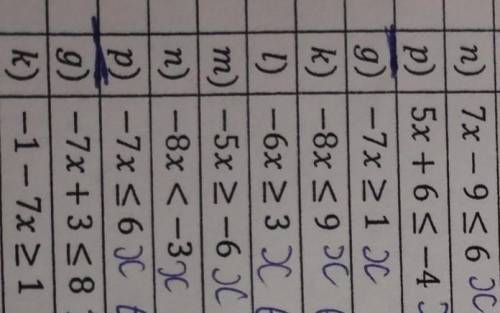 n) 7x − 9 ≤ 6 x
p) 5x + 6 ≤ −4
g) −7x ≥ 1 x
k) −8x ≤ 9 x
l) −6x ≥ 3 x
m) −5x ≥ −6 x
n) −8x < −3 x
p) −7x ≤ 6 x
g) −7x + 3 ≤ 8
k) −1 − 7x ≥ 1